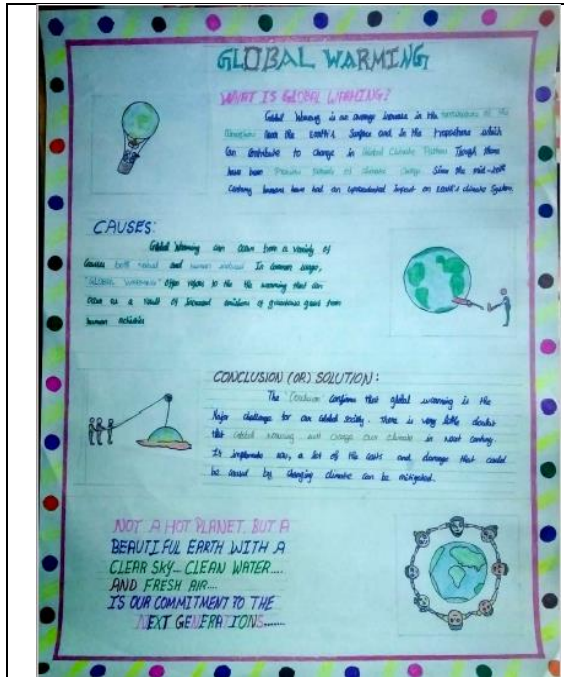 GLOBAL WARMING
WHAT IS GLOBAL WARMING?
Global Warming is an average increase in the temperature of the
atmosphere near the Earth's Surface and in the troposphere which
Can Contribute to change in Global Climate Pattern Though there
have been Previous Periods of climatic Change Since the mid-20th
Century humans have had an unprecedented impact on Earth's climate System.
CAUSES:
Global Warming can occur from a variety of
Causes both natural and human induced In Common usage,
"GLOBAL WARMING" often refers to the the warming that can
occur as a result of increased emissions of greenhouse gases from
human activities
CONCLUSION (OR) SOLUTION:
The confirms that global warming is the
Major challenge for our Global Society. There is very little doubt
that Global warming will change our climate in next Century.
a lot of the costs and damage that could
be caused by changing climate can be mitigated.
NOT A HOT PLANET, BUT A
BEAUTIFUL EARTH WITH A
CLEAR SKY... CLEAN WATER....
AND FRESH AIR....
IS OUR COMMITMENT TO THE
NEXT GENERATIONS.......